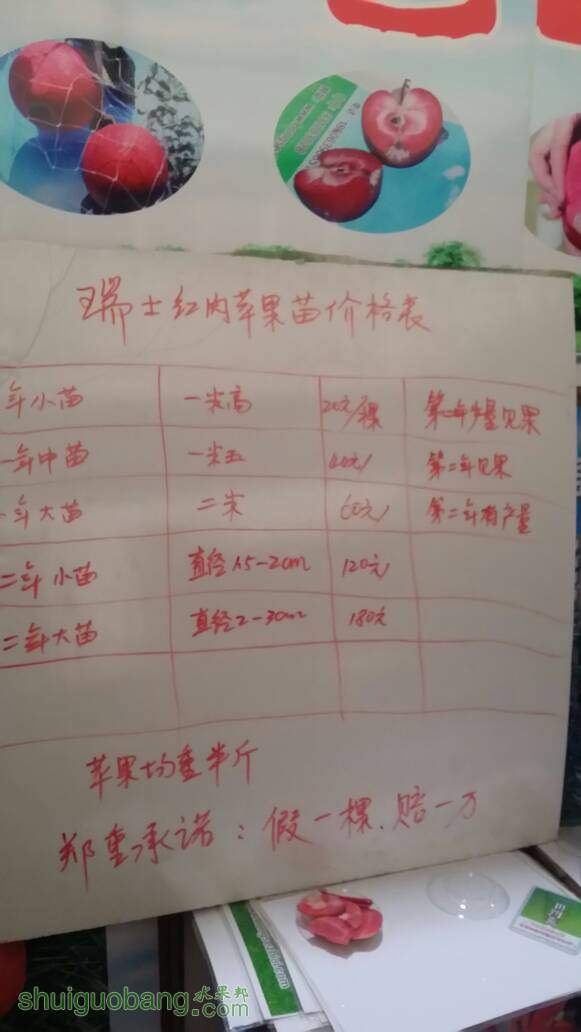 瑞士红肉苹果苗价格表
年小苗 一米高 20元/棵 第二年少量见果
一年中苗 一米五 40元/ 第二年见果
一年大苗 二米 60元/ 第二年有产量
二年小苗 直径1.5-2cm 120元
二年大苗 直径2-3cm 180元
苹果均重半斤
郑重承诺：假一棵.赔一万
shuiguobang.com 水果邦